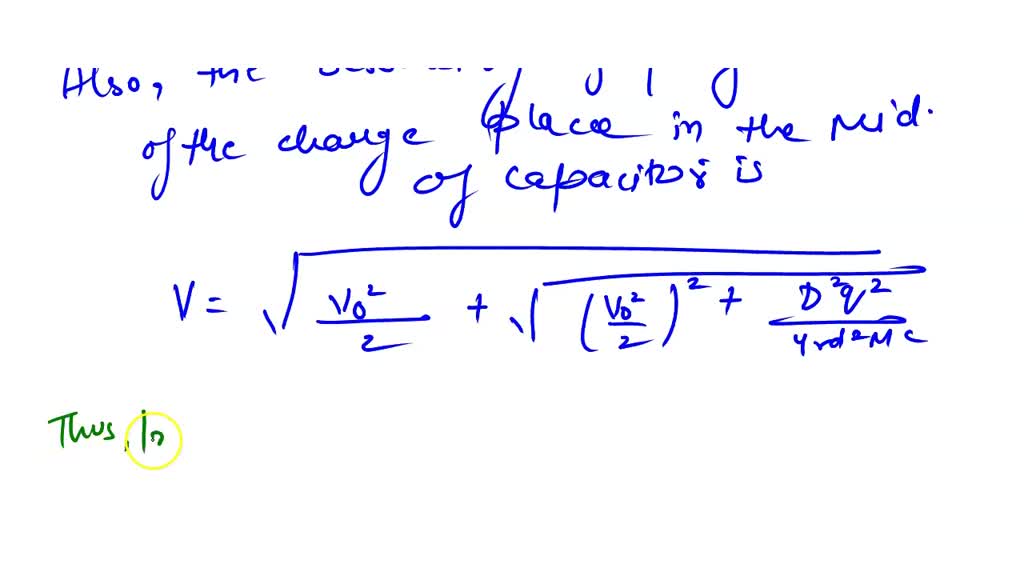 Also, the
of the charge place in the Mid.
of capacitor is
V = √(V₀²/2 + √((V₀²/2)² + D²q²/4πd²MC))
Thus, In